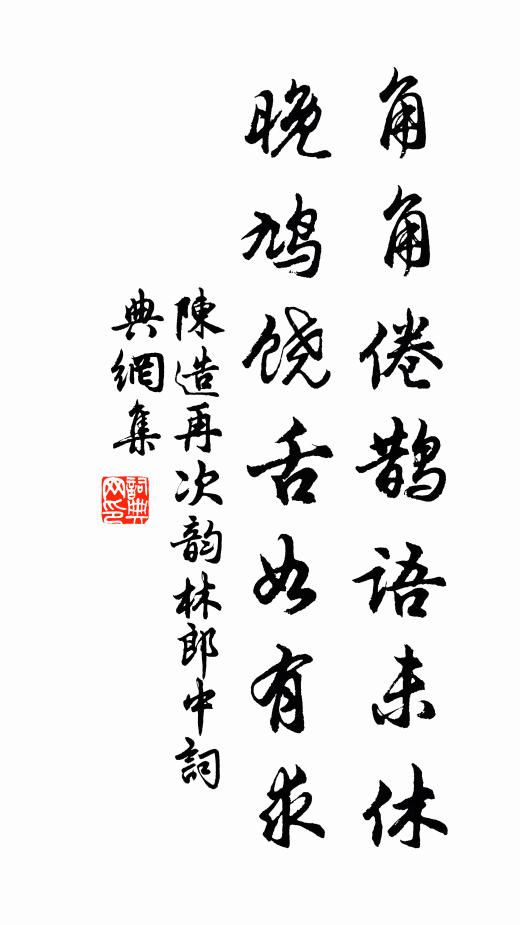 角角倦鹊语未休
晚鸠饶舌如有求
陳造再次韵林郎中詞
典網集
詞典网印